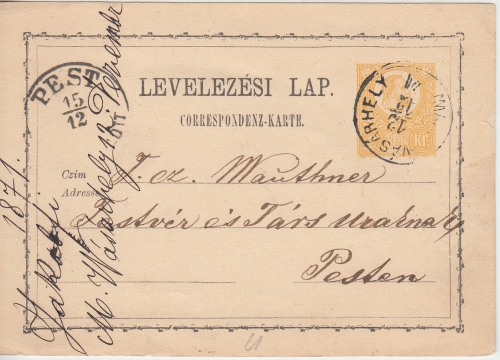 PEST
15
12
LEVELEZÉSI LAP.
CORRESPONDENZ-KARTE.
VÁSÁRHELY
12
KR.
Czim
Adresse
T. cz. Mauthner
Testvér és Társ uraknak
Pesten
1871.
M. Vásárhely 12 Dezember